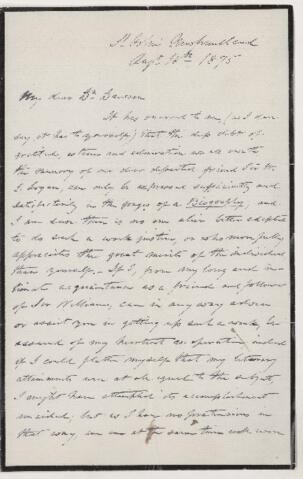 St John New Brunswick
Augt 16th 1875
My dear Dr Dawson
It has occurred to me, (as I dare
say it has to yourself,) that the deep debt of
gratitude, esteem and admiration we all owe to
the memory of our dear departed friend Sir W.
E. Logan, can only be expressed sufficiently and
satisfactorily in the pages of a Biography; and
I am sure there is no one alive better adapted
to do such a work justice, or who more fully
appreciates the great merits of the individual
than yourself. If I, from my long and in
timate acquaintance as a friend and follower
of Sir William, can in any way advise
or assist you in getting up such a work, be
assured of my heartiest co-operation; indeed
if I could flatter myself that my literary
attainments were at all equal to the subject,
I might have attempted its accomplishment
unaided; but as I have no pretensions in
that way, and am at the same time